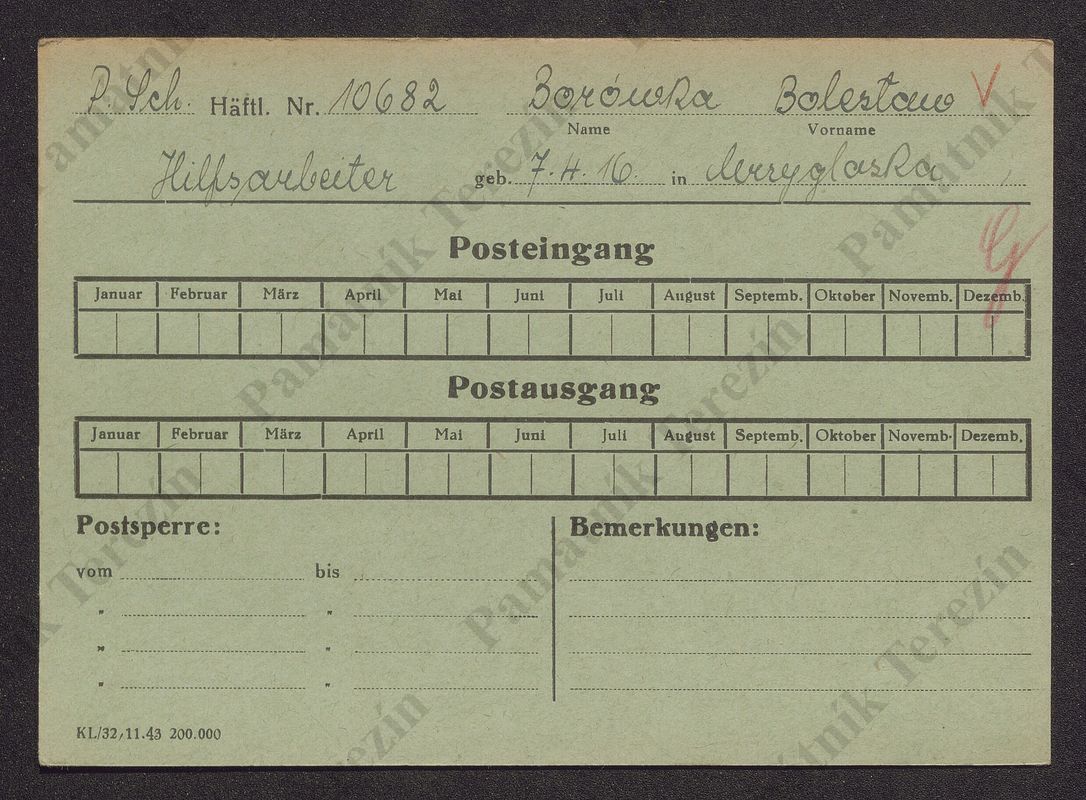 P. Sch. Häftl. Nr. 10682 Borówka Bolesław V
Name Vorname
Hilfsarbeiter geb. 7.4.16. in
Posteingang
Januar Februar März April Mai Juni Juli August Septemb. Oktober Novemb. Dezemb.
Postausgang
Januar Februar März April Mai Juni Juli August Septemb. Oktober Novemb. Dezemb.
Postsperre: Bemerkungen:
vom bis
" "
" "
" "
KL/32/11.43 200.000
Památník Terezín